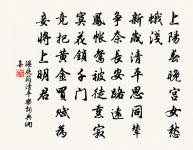 上陽春晚宮女愁
蛾淺
新歲清平思同輦
爭奈長安路遠
鳳帳鴛被徒熏寂
寞花鎖千門
競把黃金買賦為
妾將上明君
溫庭筠清平樂詞典網